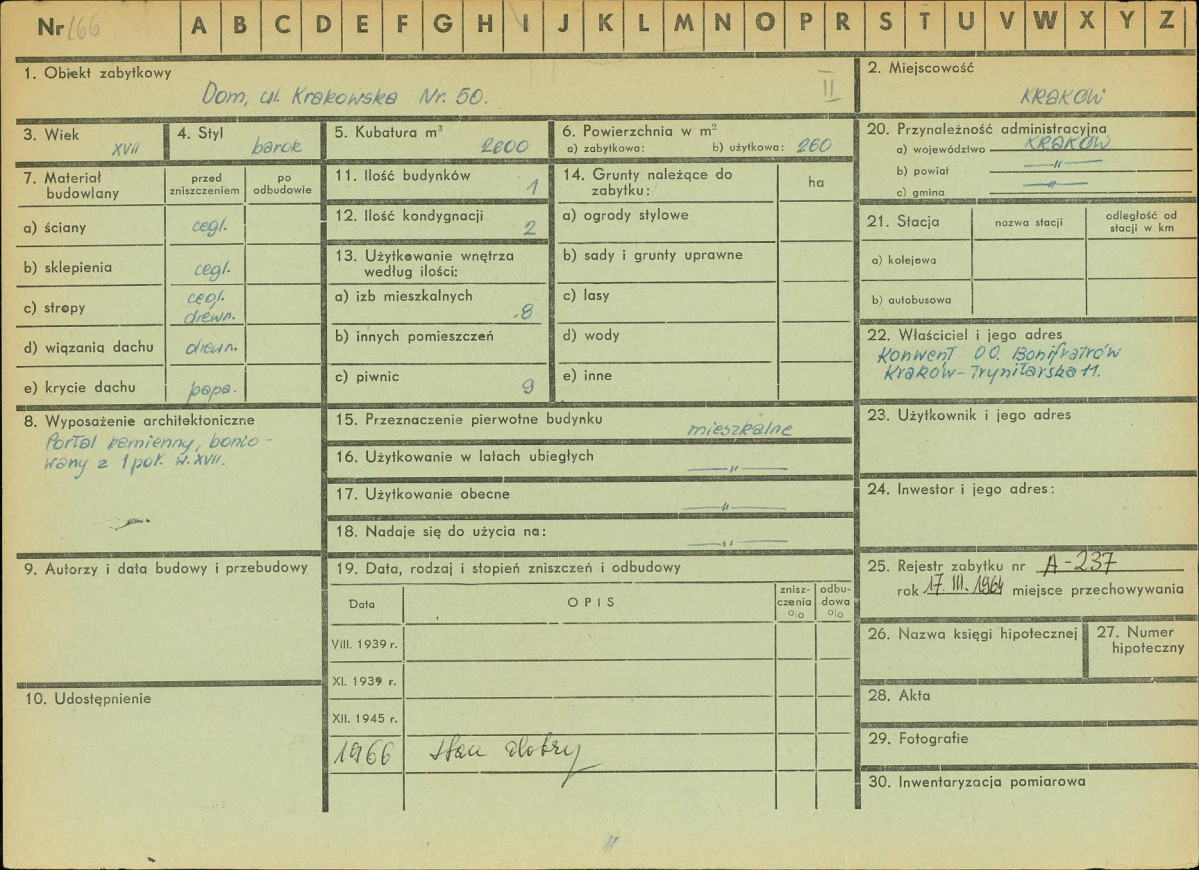 Nr 166 A B C D E F G H I J K L M N O P R S T U V W X Y Z
1. Obiekt zabytkowy
Dom, ul. Krakowska Nr. 50.
II
2. Miejscowość
KRAKÓW
3. Wiek
XVII
4. Styl
barok
5. Kubatura m³
2600
6. Powierzchnia w m²
a) zabytkowa: b) użytkowa: 260
20. Przynależność administracyjna
a) województwo KRAKÓW
b) powiat —"—
c) gmina —"—
7. Materiał budowlany
przed zniszczeniem
po odbudowie
a) ściany cegl.
b) sklepienia cegl.
c) stropy cegl.
drewn.
d) wiązania dachu drewn.
e) krycie dachu papa.
11. Ilość budynków
1
12. Ilość kondygnacji
2
13. Użytkowanie wnętrza
według ilości:
a) izb mieszkalnych
8
b) innych pomieszczeń
c) piwnic
9
14. Grunty należące do
zabytku:
ha
a) ogrody stylowe
b) sady i grunty uprawne
c) lasy
d) wody
e) inne
21. Stacja
nazwa stacji
odległość od
stacji w km
a) kolejowa
b) autobusowa
22. Właściciel i jego adres
Konwent OO. Bonifratrów
Kraków - Trynitarska 11.
8. Wyposażenie architektoniczne
Portal kamienny, bonio-
wany z 1 poł. w. XVII.
15. Przeznaczenie pierwotne budynku
mieszkalne
16. Użytkowanie w latach ubiegłych
—"—
17. Użytkowanie obecne
—"—
18. Nadaje się do użycia na:
—"—
23. Użytkownik i jego adres
24. Inwestor i jego adres:
9. Autorzy i data budowy i przebudowy
19. Data, rodzaj i stopień zniszczeń i odbudowy
Data
OPIS
znisz-
czenia
o/o
odbu-
dowa
o/o
VIII. 1939 r.
XI. 1939 r.
XII. 1945 r.
1966 stan dobry
10. Udostępnienie
25. Rejestr zabytku nr A-237
rok 17. III. 1964 miejsce przechowywania
26. Nazwa księgi hipotecznej
27. Numer
hipoteczny
28. Akta
29. Fotografie
30. Inwentaryzacja pomiarowa